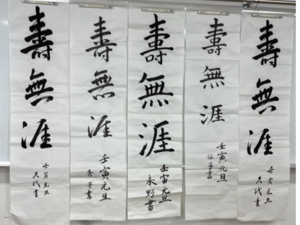 壽無涯
壬寅元旦
久代書
壽無涯
壬寅元旦
書
壽無涯
壬寅元旦
書
壽無涯
壬寅元旦
書
壽無涯
壬寅元旦
久代書